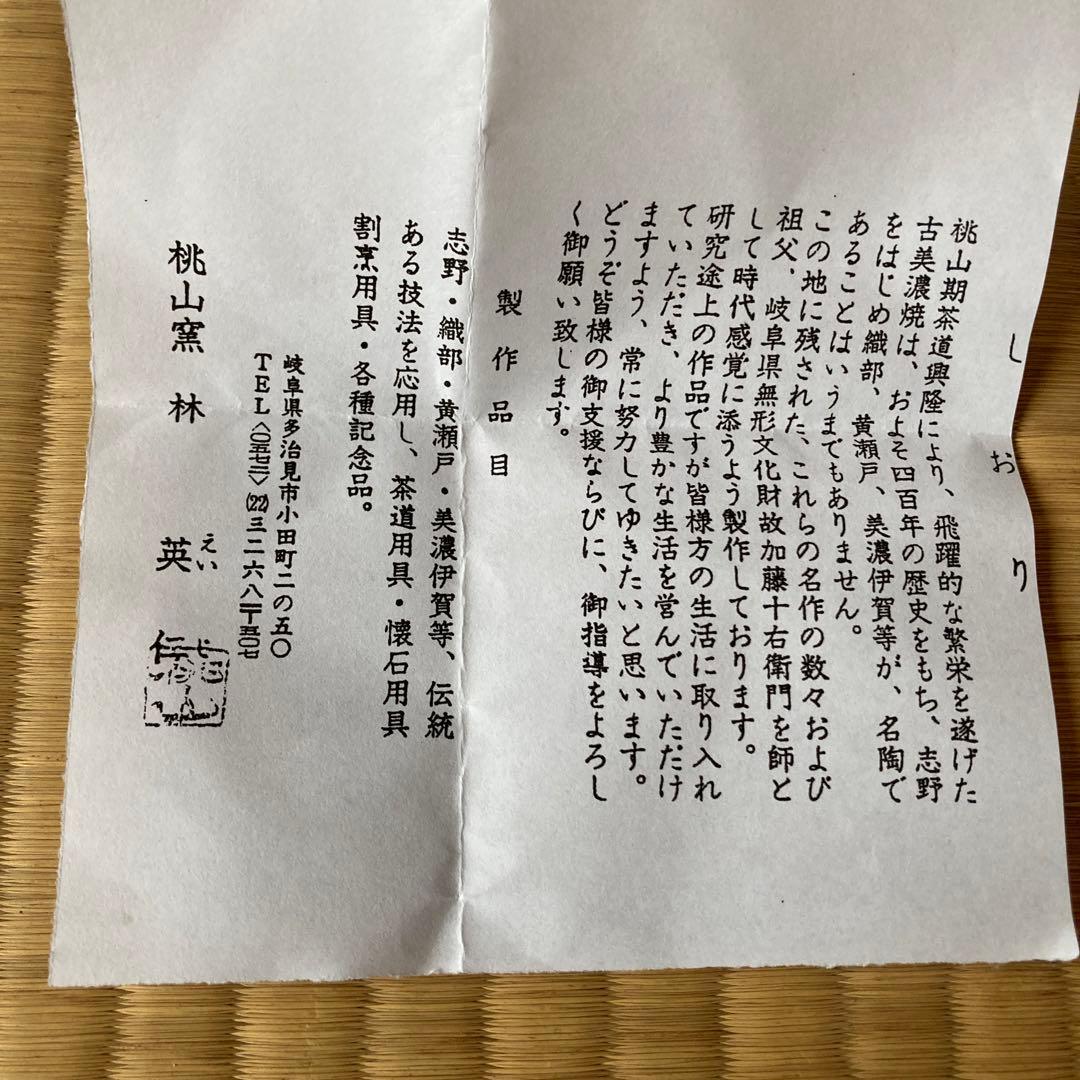 しおり
桃山期茶道興隆により、飛躍的な繁栄を遂げた
古美濃焼は、およそ四百年の歴史をもち、志野
をはじめ織部、黄瀬戸、美濃伊賀等が、名陶で
あることはいうまでもありません。
この地に残された、これらの名作の数々および
祖父、岐阜県無形文化財故加藤十右衛門を師と
して時代感覚に添うよう製作しております。
研究途上の作品ですが皆様方の生活に取り入れ
ていただき、より豊かな生活を営んでいただけ
ますよう、常に努力してゆきたいと思います。
どうぞ皆様の御支援ならびに、御指導をよろし
く御願い致します。
製作品目
志野・織部・黄瀬戸・美濃伊賀等、伝統
ある技法を応用し、茶道用具・懐石用具
割烹用具・各種記念品。
岐阜県多治見市小田町二の五〇
TEL〈〇五七二〉(22)三二六八〒五〇七
桃山窯 林 英仁
えい